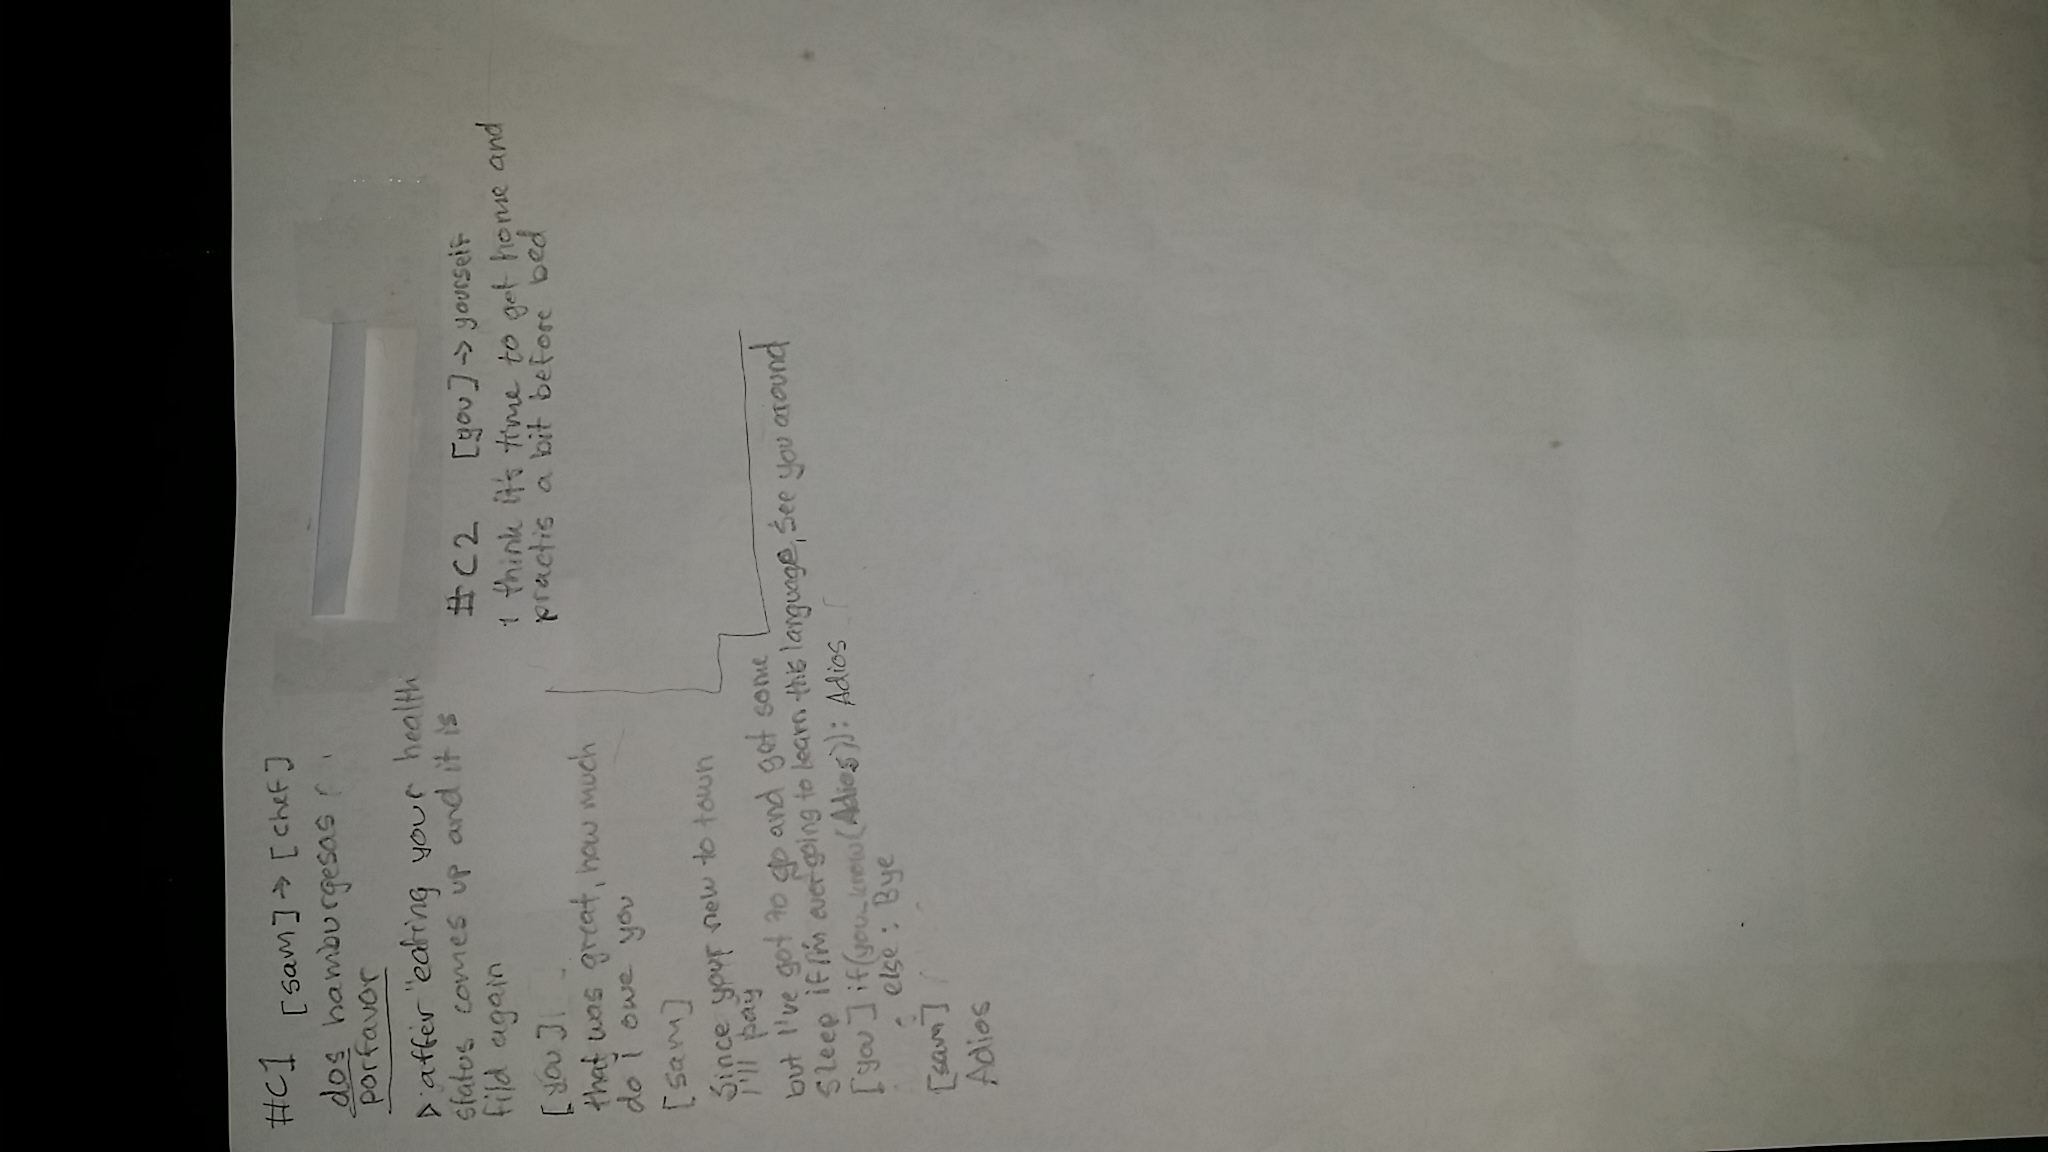 #C1 [sam] → [chef]
dos hamburgesas
porfavor
▷ after eating your health
status comes up and it is
fild again
[you]
that was great, how much
do i owe you
[sam]
Since your new to town
I'll pay
but I've got to go and get some
sleep if I'm ever going to learn this language, see you around
[you] if(you_know(Adios)): Adios
else : Bye
[sam]
Adios
#C2 [you] → yourself
i think it's time to get home and
practis a bit before bed